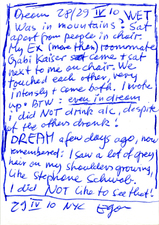 Dream 28/29 IV 10 WET
Was in mountains? Sat
apart from people in chair.
My EX (more than) roommate
Gabi Kaiser came & sat
next to me on chair. We
touched each other, very
intensly & come both. I woke
up. BTW: even in dream
i did NOT drink alc, despite
of the others drank!
DREAM a few days ago, now
remembered: I saw a lot of grey
hair on my shoulders growing,
like Stephone Schwab.
I did NOT like to see that!
29 IV 10 NYC